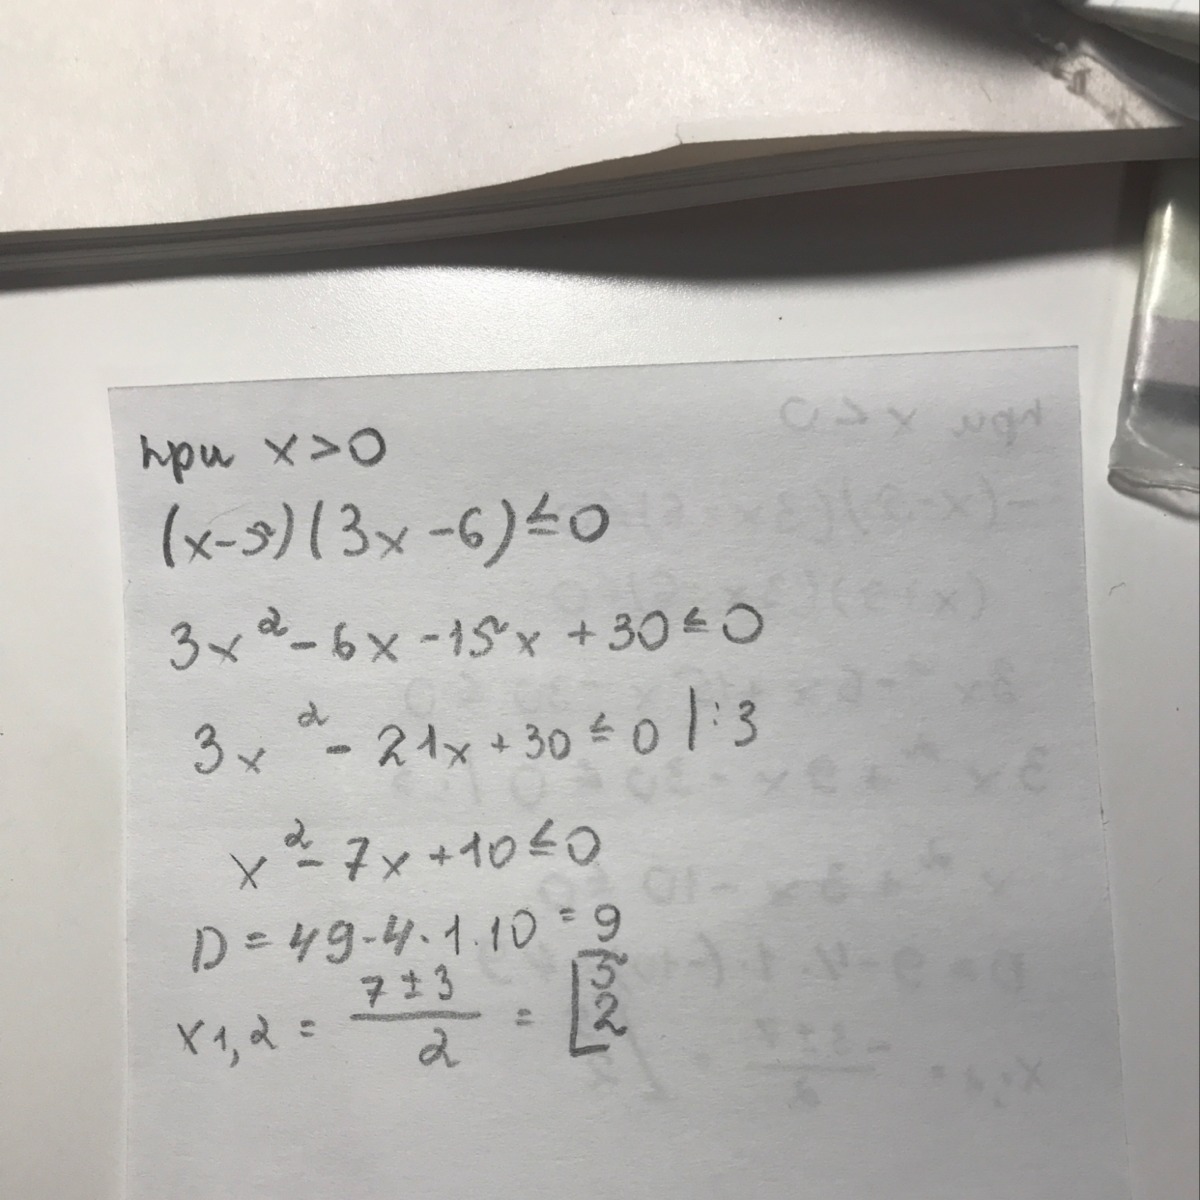 при x>0
(x-5)(3x-6)≤0
3x²-6x-15x+30≤0
3x²-21x+30≤0 |:3
x²-7x+10≤0
D=49-4·1·10=9
x1,2 = (7±3)/2 = [5 2